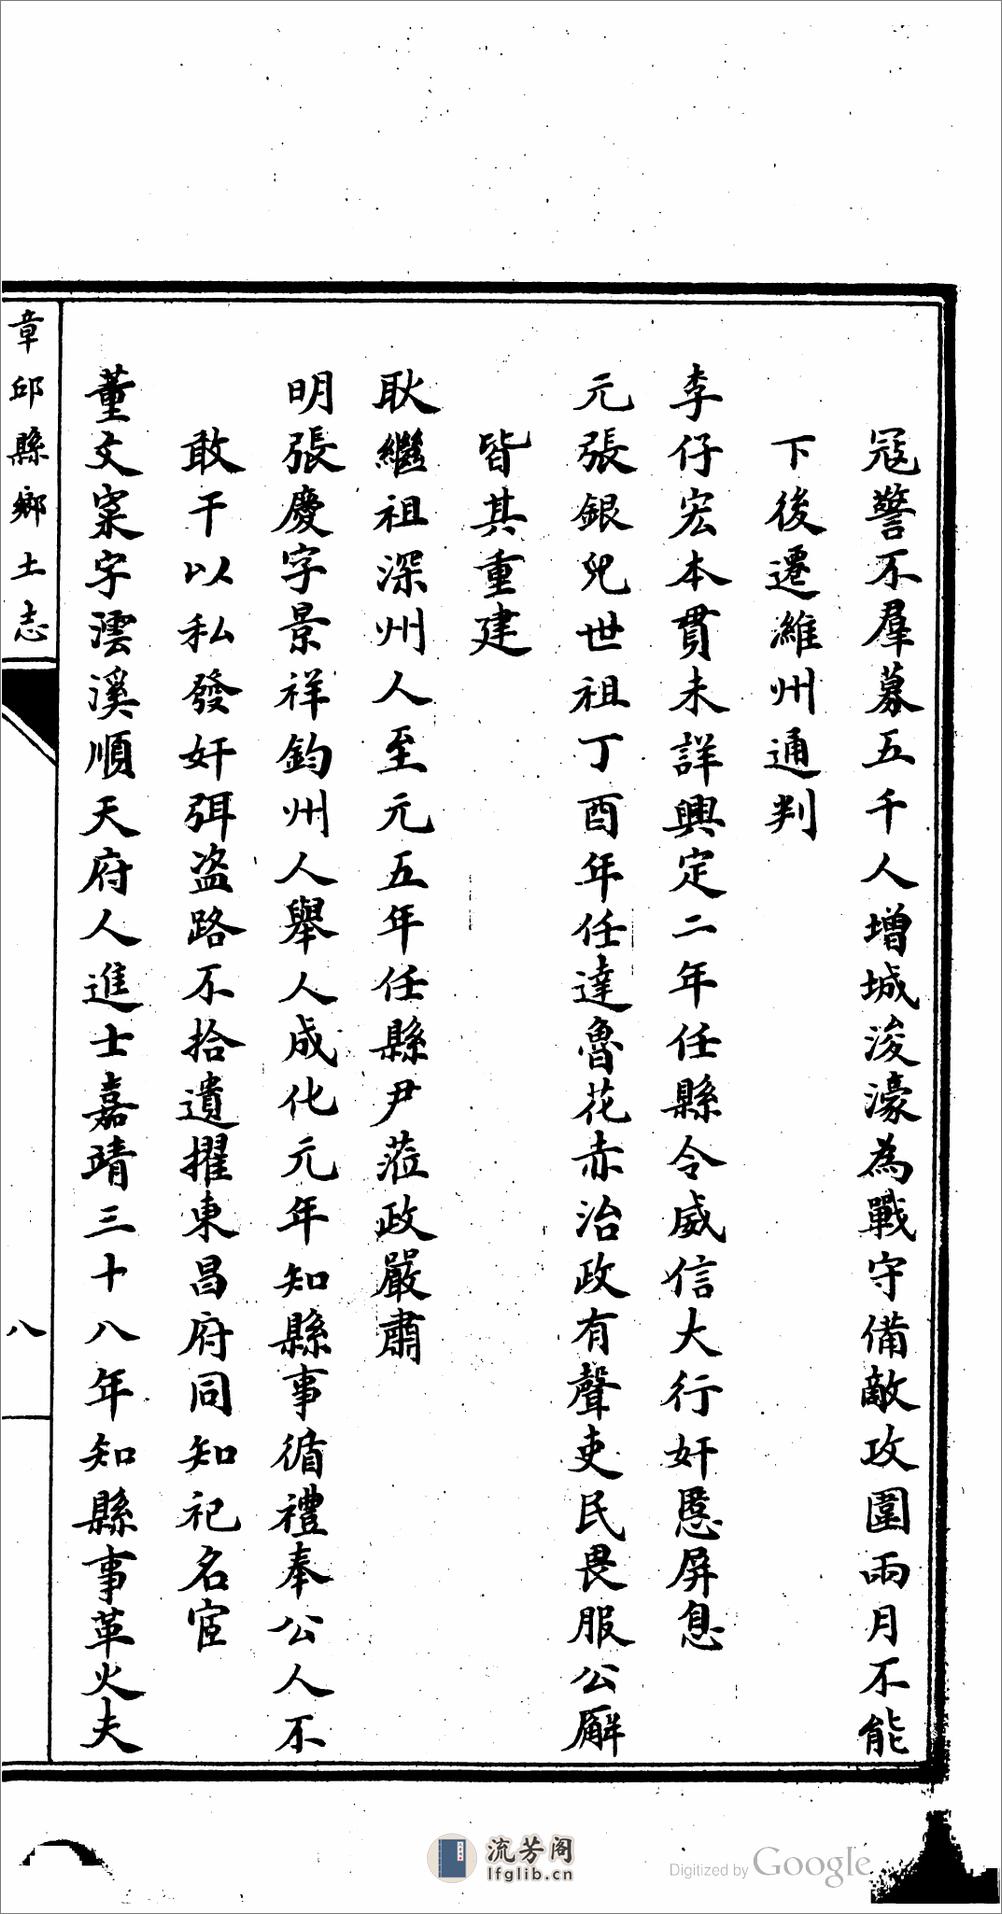 寇警不羣募五千人增城浚濠為戰守備敵攻圍兩月不能
下後遷濰州通判
李仔宏本貫未詳興定二年任縣令威信大行奸慝屏息
元張銀兒世祖丁酉年任達魯花赤治政有聲吏民畏服公廨
皆其重建
耿繼祖深州人至元五年任縣尹蒞政嚴肅
明張慶字景祥鈞州人舉人成化元年知縣事循禮奉公人不
敢干以私發奸弭盜路不拾遺擢東昌府同知祀名宦
董文寀字澐溪順天府人進士嘉靖三十八年知縣事革火夫
章邱縣鄉土志
八
流芳阁
lfglib.cn
Digitized by Google